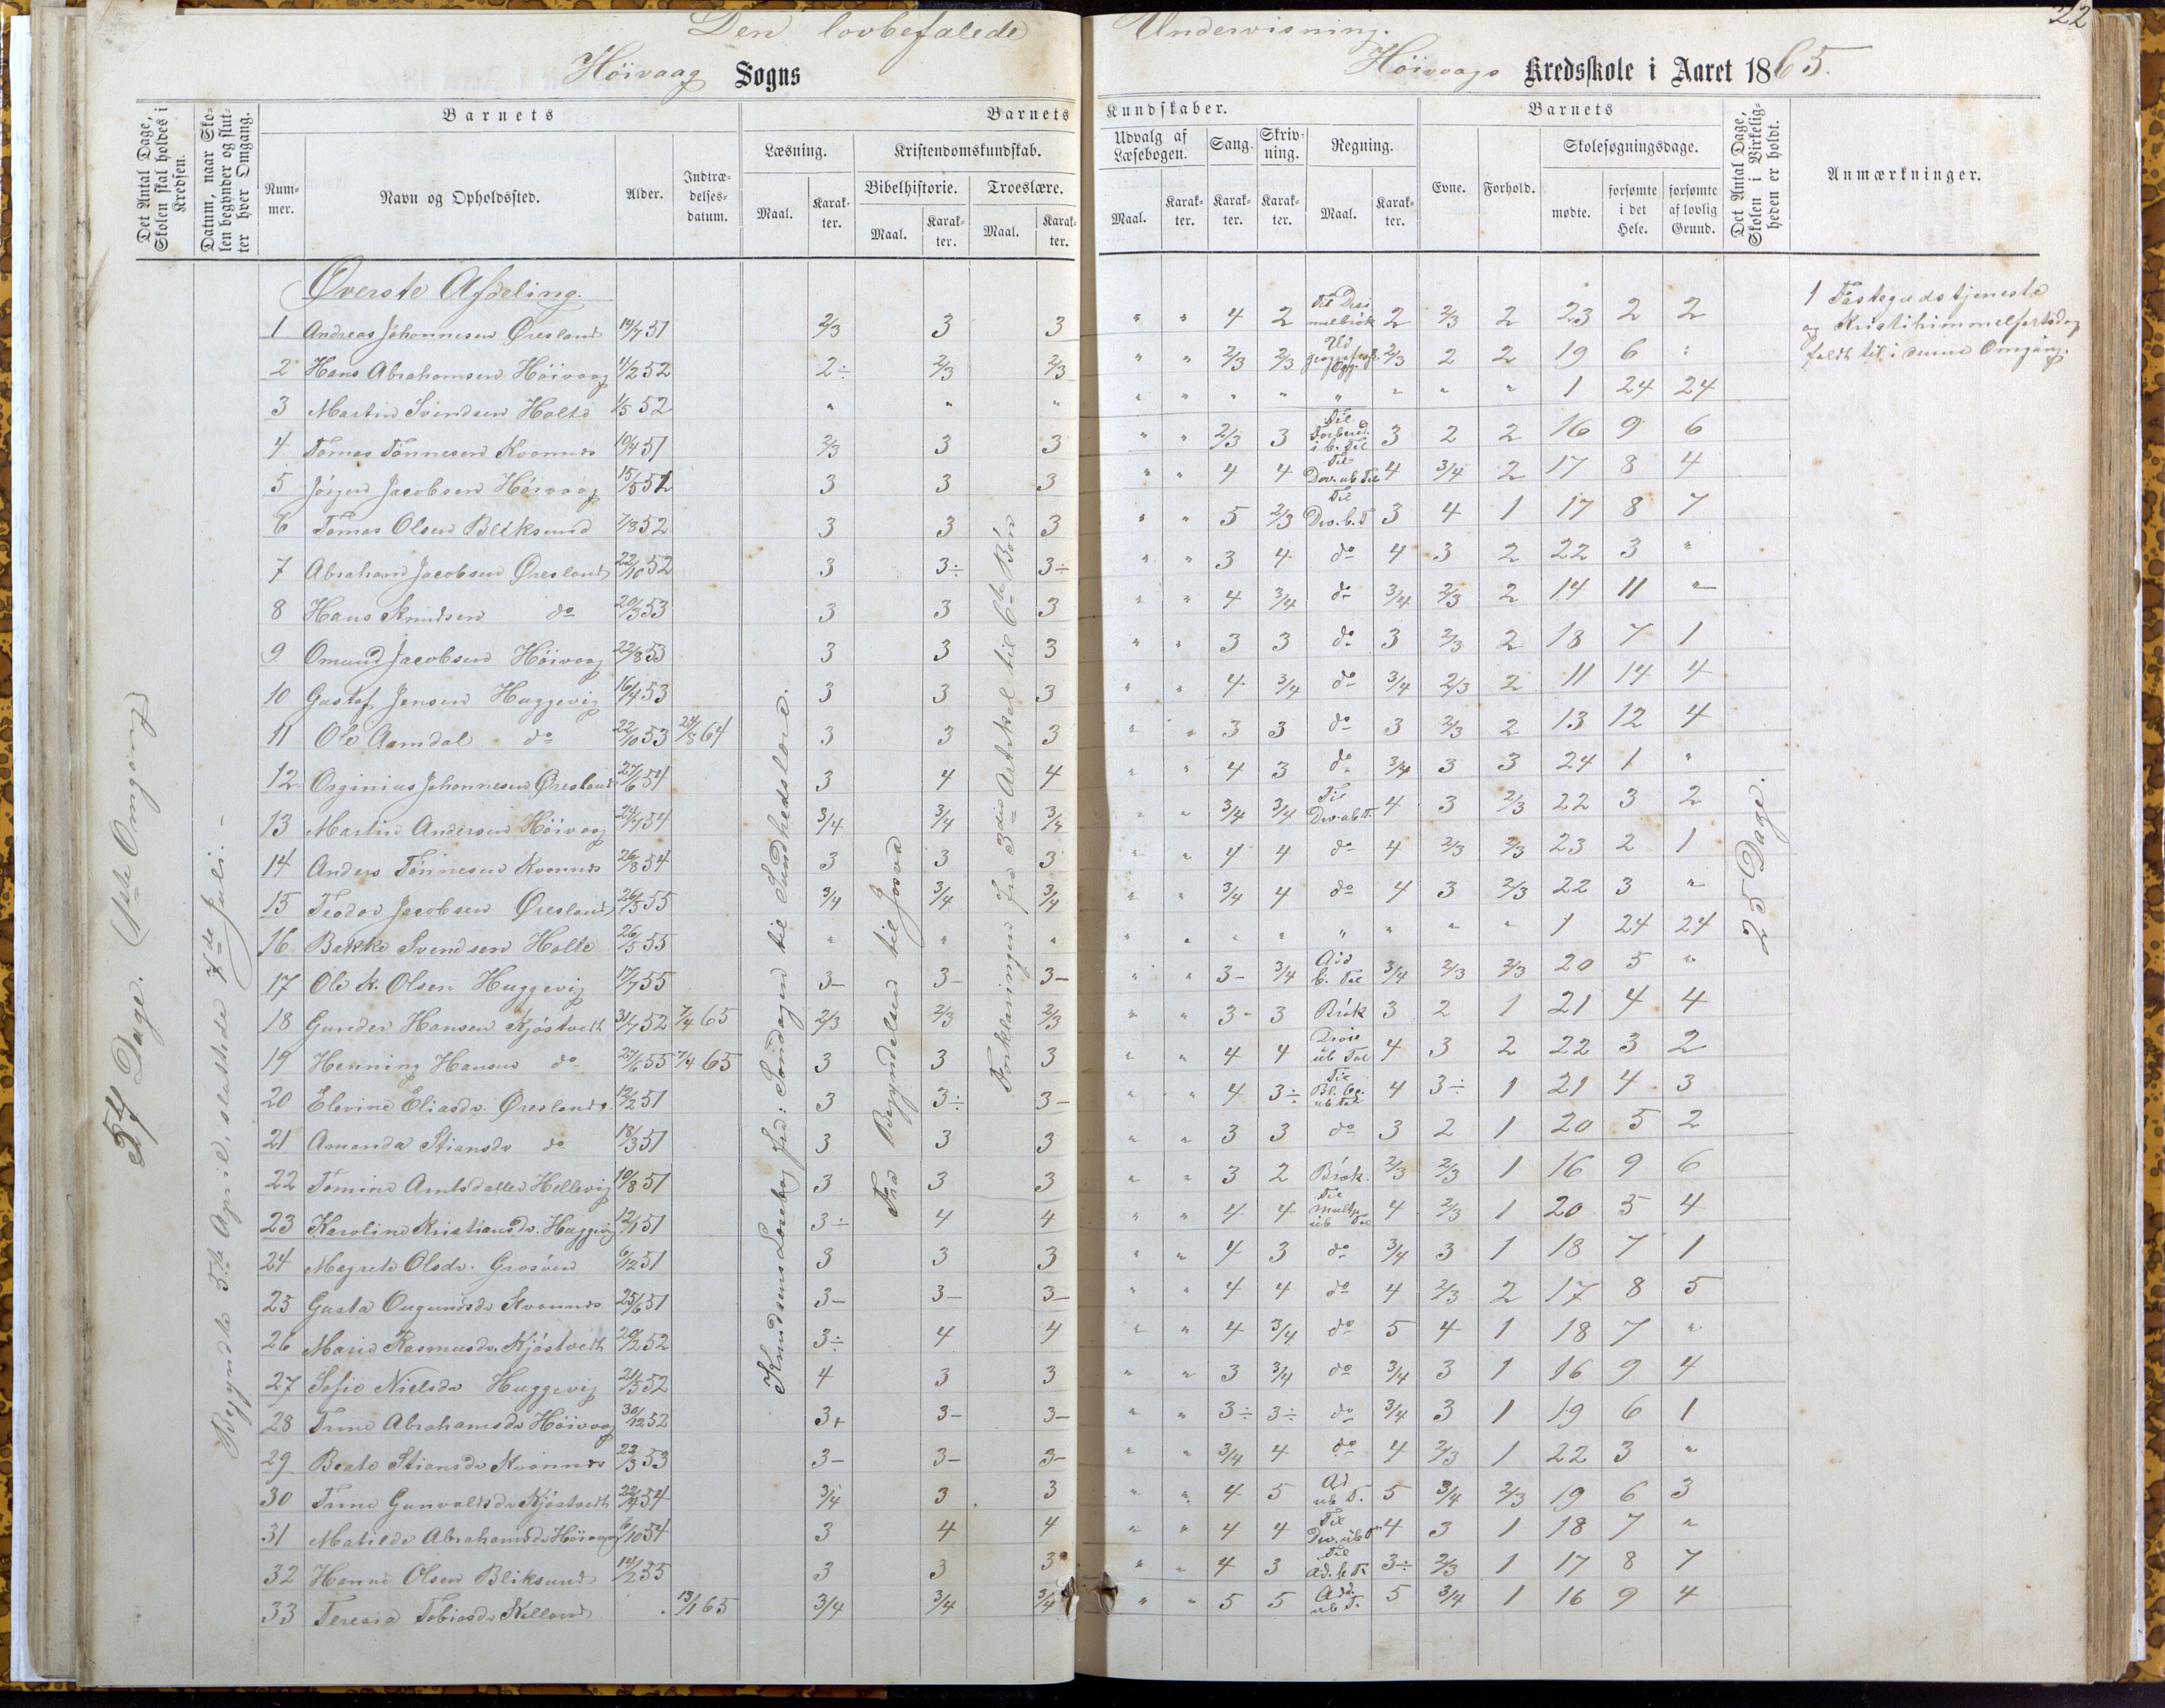 Den lovbefalede Undervisning.
22
Höivaag Sogns Höivaags Kredsskole i Aaret 1865.
Det Antal Dage, Skolen skal holdes i Kredsen.
Datum, naar Skolen begynder og slutter hver Omgang.
Barnets
Nummer.
Navn og Opholdssted.
Alder.
Indtrædelsesdatum.
Barnets Kundskaber.
Læsning.
Maal.
Karakter.
Kristendomskundskab.
Bibelhistorie.
Maal.
Karakter.
Troeslære.
Maal.
Karakter.
Udvalg af Læsebogen.
Maal.
Karakter.
Sang.
Karakter.
Skrivning.
Karakter.
Regning.
Maal.
Karakter.
Barnets
Evne.
Forhold.
Skolesøgningsdage.
mødte.
forsømte i det Hele.
forsømte af lovlig Grund.
Det Antal Dage, Skolen i Virkeligheden er holdt.
Anmærkninger.
Dage. (1ste Omgang)
Begyndte 5te April, sluttede 7de Juli.
Knudsens Læsebog fra: Söndagen til Sundhedslære.
Fra Begyndelsen til Josva
Forklaringen fra 3die Artikel til 6te Bön
25 Dage.
1 Fastegudstjeneste
og Kristihimmelfartsdag
faldt til i denne Omgang.
Överste Afdeling.
1 Andreas Johannesen Öresland 14/7 51 2/3 3 3 " " 4 2 2 2/3 2 23 2 2
2 Hans Abrahamsen Höivaag 4/2 52 2÷ 2/3 2/3 " " 2/3 2/3 2/3 2 2 19 6 "
3 Martin Svendsen Holte 1/5 52 " " " " " " " " " " " 1 24 24
4 Tomas Tönnesen Kvannes 19/4 51 2/3 3 3 " " 2/3 3 3 2 2 16 9 6
5 Jörgen Jacobsen Höivaag 15/5 52 3 3 3 " " 4 4 4 3/4 2 17 8 4
6 Tomas Olsen Bliksund 7/8 52 3 3 3 " " 5 2/3 3 4 1 17 8 7
7 Abraham Jacobsen Öresland 22/10 52 3 3÷ 3÷ " " 3 4 do 4 3 2 22 3 "
8 Hans Knudsen do 20/3 53 3 3 3 " " 4 3/4 do 3/4 2/3 2 14 11 "
9 Omund Jacobsen Höivaag 22/8 53 3 3 3 " " 3 3 do 3 2/3 2 18 7 1
10 Gustaf Jensen Huggevig 16/4 53 3 3 3 " " 4 3/4 do 3/4 2/3 2 11 14 4
11 Ole Aamdal do 22/10 53 24/8 64 3 3 3 " " 3 3 do 3 2/3 2 13 12 4
12 Orginius Johannesen Öresland 27/6 54 3 4 4 " " 4 3 do 3/4 3 3 24 1 "
13 Martin Andersen Höivaag 24/7 54 3/4 3/4 3/4 " " 3/4 3/4 4 3 2/3 22 3 2
14 Anders Tönnesen Kvannes 26/8 54 3 3 3 " " 4 4 do 4 2/3 2/3 23 2 1
15 Teodor Jacobsen Öresland 26/5 55 3/4 3/4 3/4 " " 3/4 4 do 4 3 2/3 22 3 "
16 Bakke Svendsen Holte 26/5 55 " " " " " " " " " " " 1 24 24
17 Ole K. Olsen Huggevig 17/7 55 3- 3- 3- " " 3- 3/4 3/4 2/3 2/3 20 5 "
18 Gunder Hansen Kjöstvedt 31/7 52 7/4 65 2/3 2/3 2/3 " " 3- 3 Brök 3 2 1 21 4 4
19 Henning Hansen do 27/6 55 7/4 65 3 3 3 " " 4 4 4 3 2 22 3 2
20 Elevine Eliasdr. Öresland 12/2 51 3 3÷ 3- " " 4 3÷ 4 3÷ 1 21 4 3
21 Amanda Stiansdr do 18/3 51 3 3 3 " " 3 3 do 3 2 1 20 5 2
22 Tomine Hellevig 10/8 51 3 3 3 " " 3 2 Brök. 2/3 2/3 1 16 9 6
23 Karoline Kristiansdr. Huggevig 12/7 51 3÷ 4 4 " " 4 4 4 2/3 1 20 5 4
24 Magrete Olsdr. 6/12 51 3 3 3 " " 4 3 do 3/4 3 1 18 7 1
25 Gusta Kvannes 25/6 51 3- 3- 3- " " 4 4 do 4 2/3 2 17 8 5
26 Marie Rasmusdr. Kjöstvedt 20/2 52 3÷ 4 4 " " 4 3/4 do 5 4 1 18 7 "
27 Sofie Nielsdr Huggevig 21/5 52 4 3 3 " " 3 3/4 do 3/4 3 1 16 9 4
28 Trine Abrahamsdr Höivaag 30/12 52 3+ 3- 3- " " 3÷ 3÷ do 3/4 3 1 19 6 1
29 Beate Stiansdr Kvannes 22/3 53 3- 3- 3- " " 3/4 4 do 4 2/3 1 22 3 "
30 Trine Gunvaldsdr Kjöstvedt 22/4 54 3/4 3 3 " " 4 5 5 3/4 2/3 19 6 3
31 Matilde Abrahamsdr Höivaag 6/10 54 3 4 4 " " 4 4 4 3 1 18 7 "
32 Hanne Olsen Bliksund 14/2 55 3 3 3 " " 4 3 3÷ 2/3 1 17 8 7
33 Teresia Tobiasdr Kelland 13/1 65 3/4 3/4 3/4 " " 5 5 5 3/4 1 16 9 4